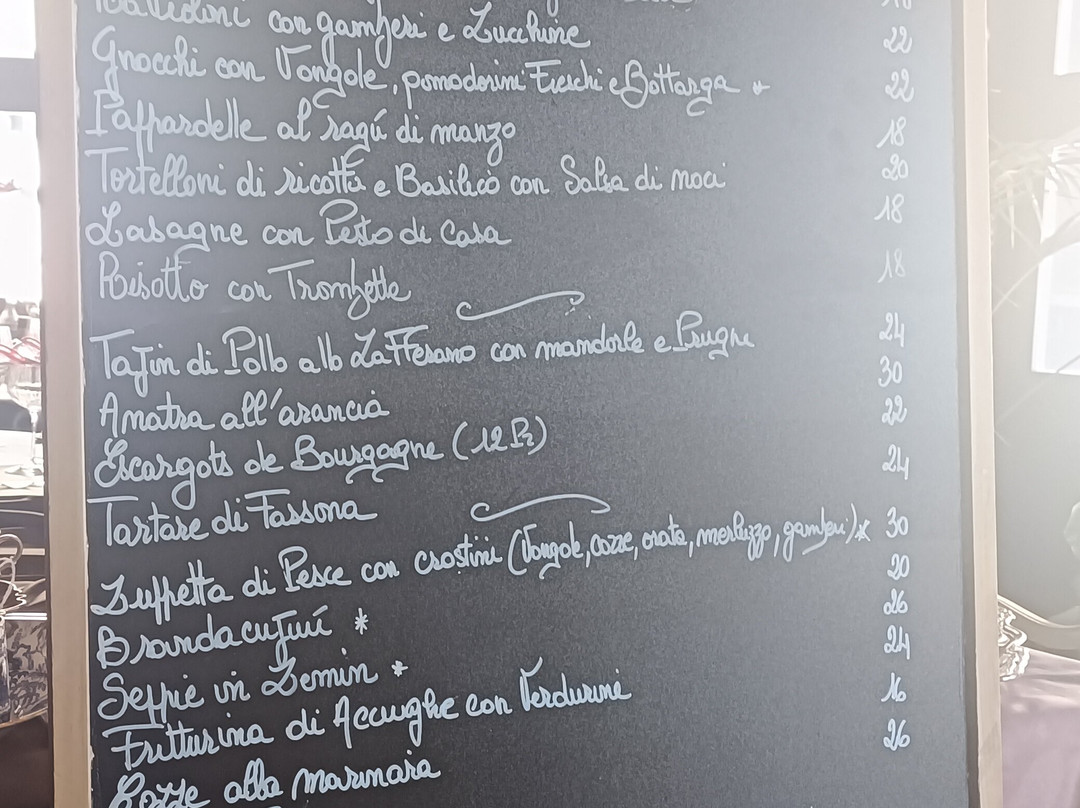 con gamberi e Zucchine 22
Gnocchi con Vongole, pomodorini Freschi e Bottarga * 22
Pappardelle al ragú di manzo 18
Tortelloni di ricotta e Basilico con Salsa di noci 20
Lasagne con Pesto di Casa 18
Risotto con Trombette 18
Tajin di Pollo allo Zafferano con mandorle e Prugne 24
Anatra all'arancia 30
Escargots de Bourgogne (12 Pz) 22
Tartare di Fassona 24
Zuppetta di Pesce con crostini (Vongole, cozze, orata, merluzzo, gamberi) * 30
Brandacujuú * 20
Seppie in Zemin * 26
Fritturina di Acciughe con Verdurine 24
Cozze alla marinara 16
26